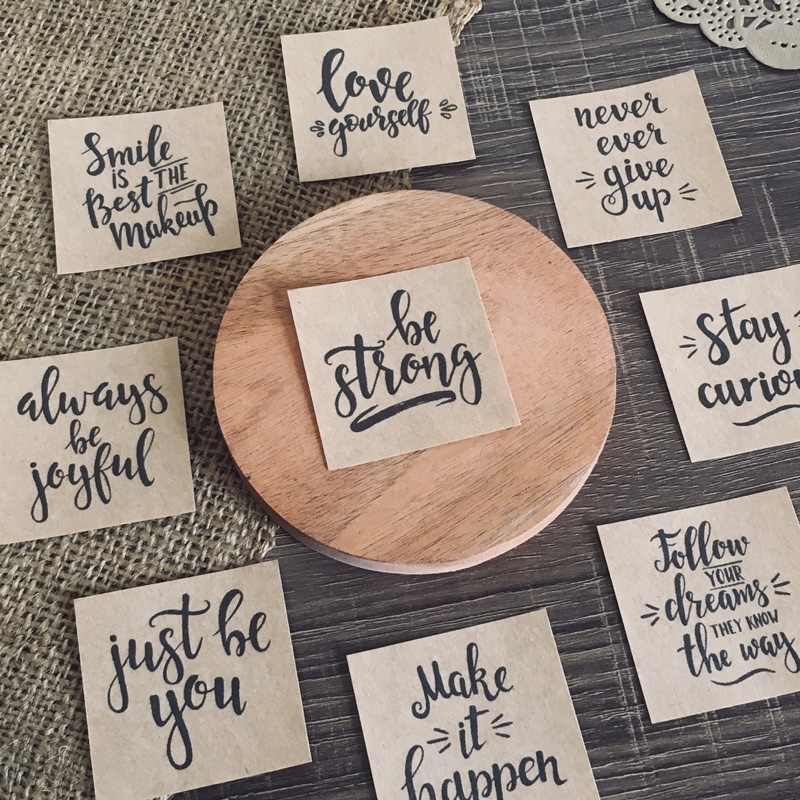 love
yourself
Smile
IS THE
Best
Makeup
never
ever
give
up
be
strong
Stay
always
be
joyful
Follow
YOUR
dreams
THEY KNOW
the way
just be
you
Make
it
happen